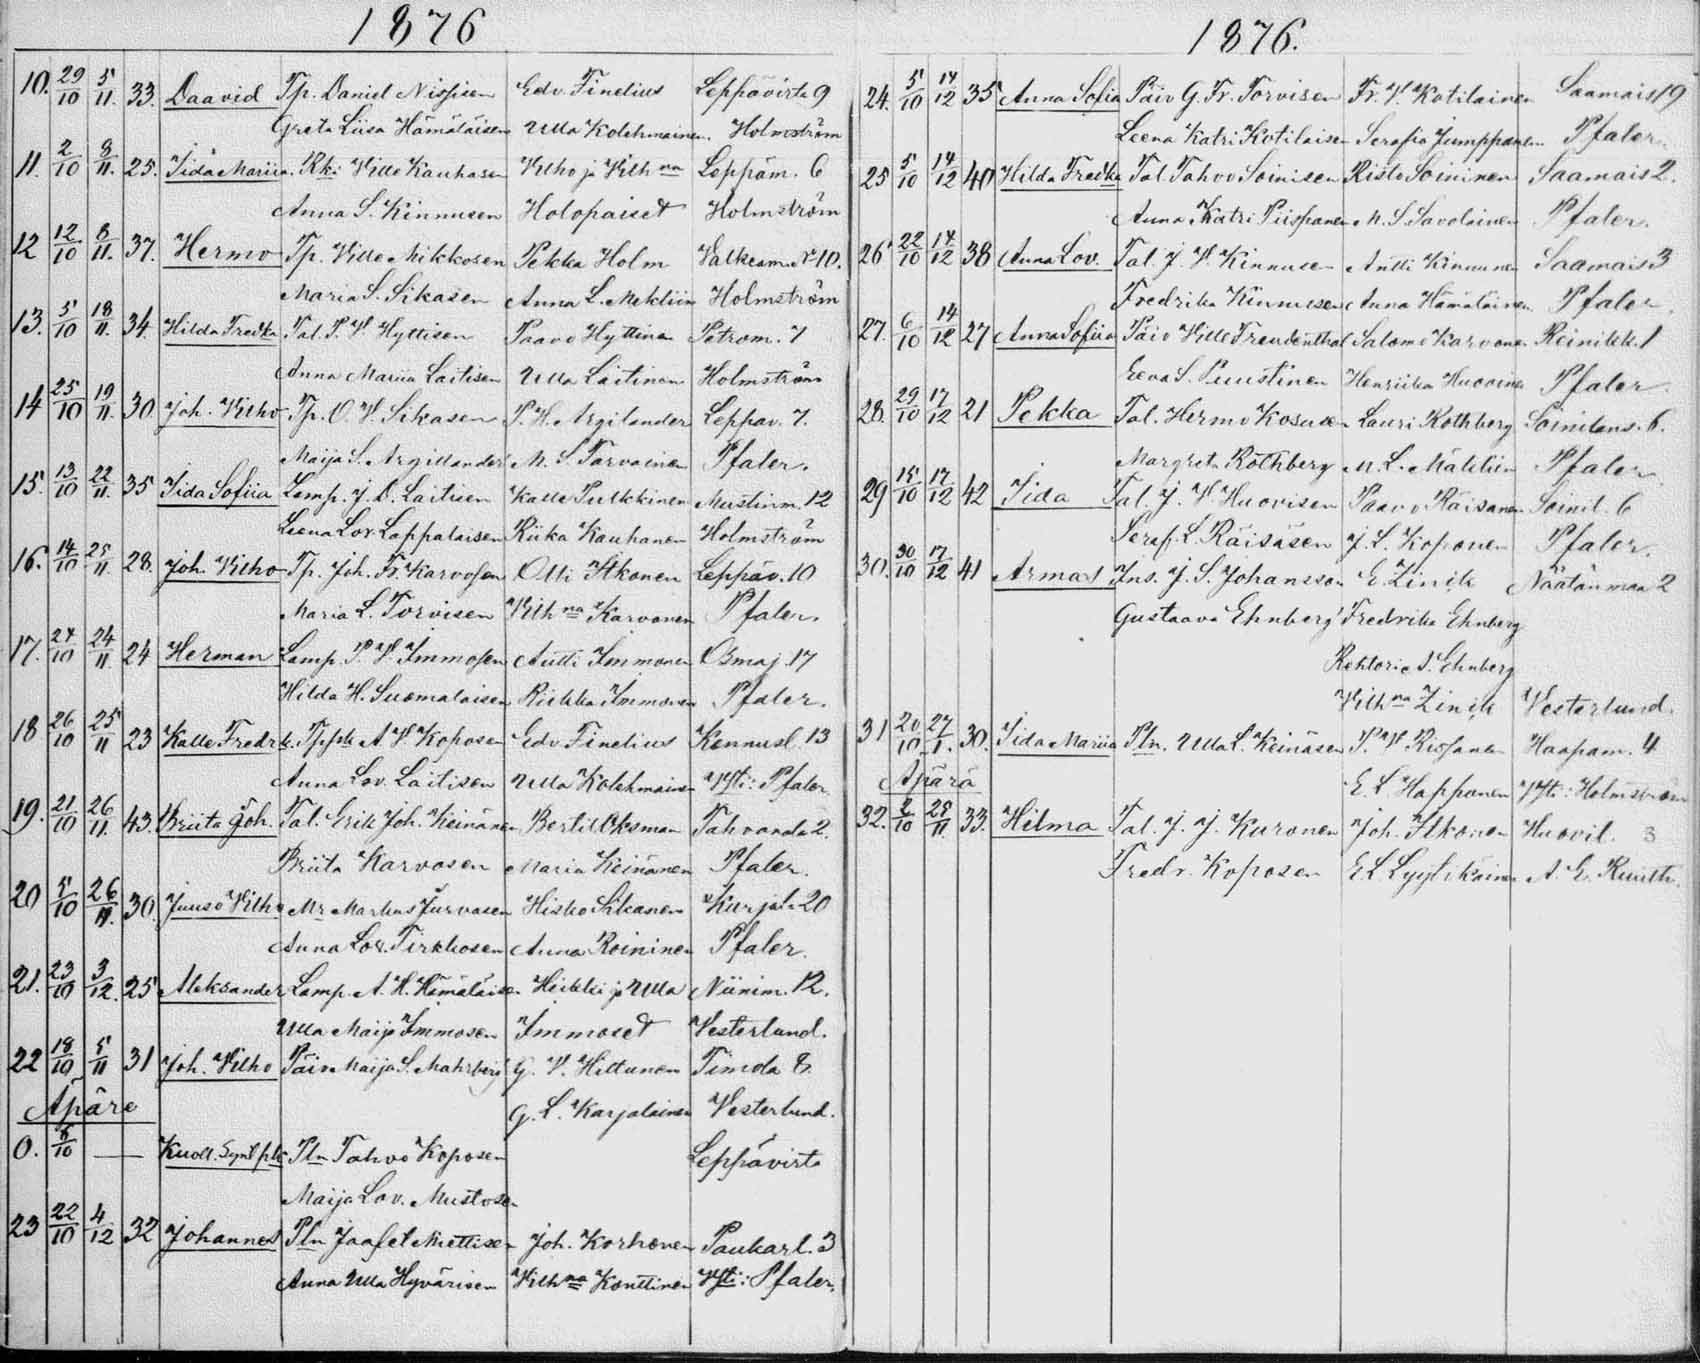 1876
10. 29/10 5/11. 33. Daavid Tp. Daniel Nissisen Edv. Finelius Leppävirta 9
Greta Liisa Hämäläisen Ulla Kolehmainen. Holmström
11. 2/10 8/11. 25. Iida Mariia. Rk: Ville Kauhasen Vilho ja Vilh na Leppäm. 6
Anna S. Kinnusen Holopaiset Holmström
12 12/10 8/11. 37. Hermo Tp. Ville Mikkosen Pekka Holm Valkeam. No 10.
Maria S. Sikasen Anna L. Meklin Holmström
13. 5/10 18/11. 34. Hilda Fredka Tal. P. V. Hyttisen Paavo Hyttinen Petrom. 7
Anna Mariia Laitisen Ulla Laitinen Holmström
14 25/10 19/11. 30. Joh. Vilho Tp. O. V. Sikasen P. H. Argilander Leppäv. 7.
Maija S. Argillander M. S. Tarvainen Pfaler.
15. 13/10 22/11. 35 Iida Sofiia Lamp. J. D. Laitisen Kalle Pulkkinen Mustinm. 12
Leena Lov. Lappalaisen Riika Kauhanen Holmström
16. 14/10 25/11. 28. Joh. Vilho Tp. Joh. Fr. Karvosen Otti Itkonen Leppäv. 10
Maria L. Torvisen Vilh na Karvonen Pfaler.
17. 24/10 24/11 24 Herman Lamp. P. V. Immosen Antti Immonen Osmaj. 17
Hilda H. Suomalaisen Riikka Immonen Pfaler.
18 26/10 25/11 23 Kalle Fredrk. A V Koposen Edv Finelius Kennusl. 13
Anna Lov. Laitisen Ulla Kolehmainen Yfti: Pfaler
19. 21/10 26/11. 43. Briita Joh. Tal. Erik Joh. Keinänen Bertil Oksman Tahvanda 2.
Briita Karvosen Maria Keinänen Pfaler.
20 5/10 26/11. 30. Juuso Vilho Mr Markus Turvasen Hisko Sikanen Kurjal. 20
Anna Lov. Tirkkosen Anna Roininen Pfaler.
21. 23/10 3/12. 25 Aleksander Lamp. A. H. Hämäläisen Heikki ja Ulla Niinim. 12.
Ulla Maija Immosen Immoset Vesterlund.
22 18/10 5/11 31 Joh. Vilho Päiv. Maija S. Mahsberg G. V. Hiltunen Timola 8.
Äpäre G. L. Karjalainen Vesterlund.
0. 5/10 — Kuoll. Synt. Pln Tahvo Koposen Leppävirta
Maija Lov. Mustosen
23 22/10 4/12 32 Johannes Pln Jaafet Miettisen Joh. Korhonen Paukarl. 3
Anna Ulla Hyvärisen Vilh na Konttinen Yfti: Pfaler.
1876.
24. 5/10 14/12 35 Anna Sofia Päiv G. Fr. Torvisen Fr. V. Kotilainen Saamais 19
Leena Katri Kotilaisen Serafia Jumppanen Pfaler.
25 5/10 14/12 40 Hilda Fredka Tal. Tahvo Soinisen Risto Soininen Saamais 2.
Anna Katri Piispanen M. S. Savolainen Pfaler.
26 22/10 14/12 38 Anna Lov. Tal. J. V. Kinnusen Antti Kinnunen Saamais 3
Fredrika Kinnusen Anna Hämäläinen Pfaler.
27. 6/10 14/12 27 Anna Sofiia Päiv Ville Freudenthal Salomo Karvonen Reinikk. 1
Eeva S. Puustinen Henriika Huovinen Pfaler.
28. 29/10 17/12 21 Pekka Tal. Hermo Kososen Lauri Rothberg Soinilans. 6.
Margreta Rothberg M. L. Mäkelin Pfaler
29 15/10 17/12 42 Iida Tal. J. V. Huovisen Paavo Räisänen Soinil. 6
Seraf. L. Räisäsen J. L. Koponen Pfaler.
30. 30/10 17/12 41 Armas Ins. J. S. Johansson E. Zinck Näätänmaa 2
Gustaava Ehnberg Fredrika Ehnberg
Rehtori S. Ehnberg
Vilh na Zinck Vesterlund.
31 20/10 27/1. 30. Iida Mariia Pln. Ulla L. Keinäsen P. V. Rissanen Haapam. 4
Äpärä E. L. Happonen Yfti: Holmström
32. 2/10 25/11. 33. Hilma Tal. J. J. Kuronen Joh. Itkonen Huovil. 3
Fredr. Koposen E L Lyytikäinen A. E.